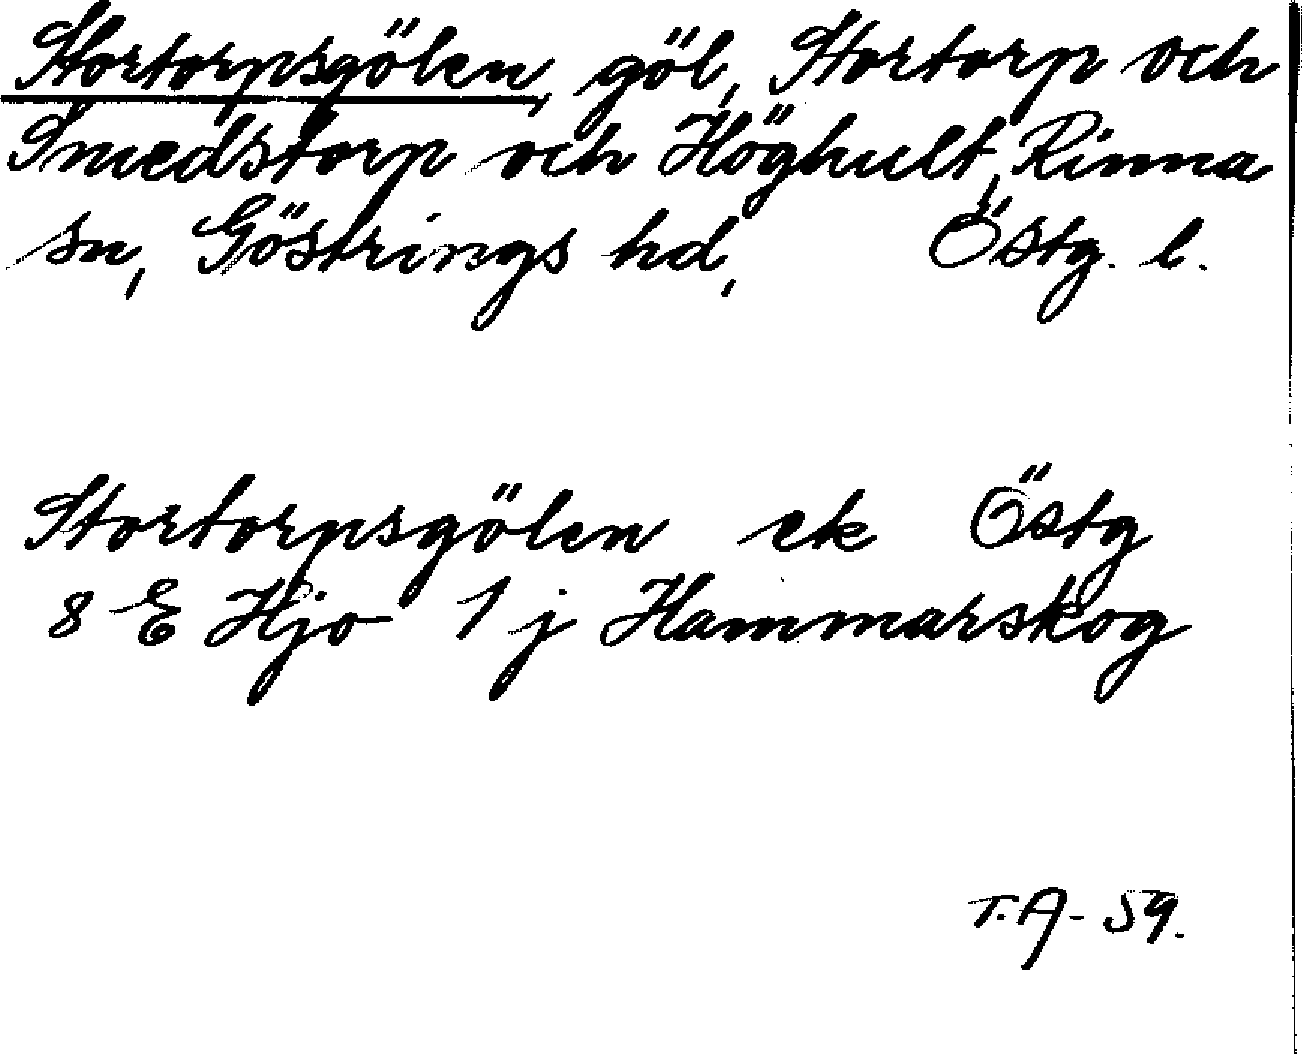 Stortorpsgölen, göl, Stortorp och
Smedstorp och Höghult, Rinna
sn, Göstrings hd, Östg. l.
Stortorpsgölen ek Östg
8 E Hjo 1 j Hammarskog
T.A- 59.